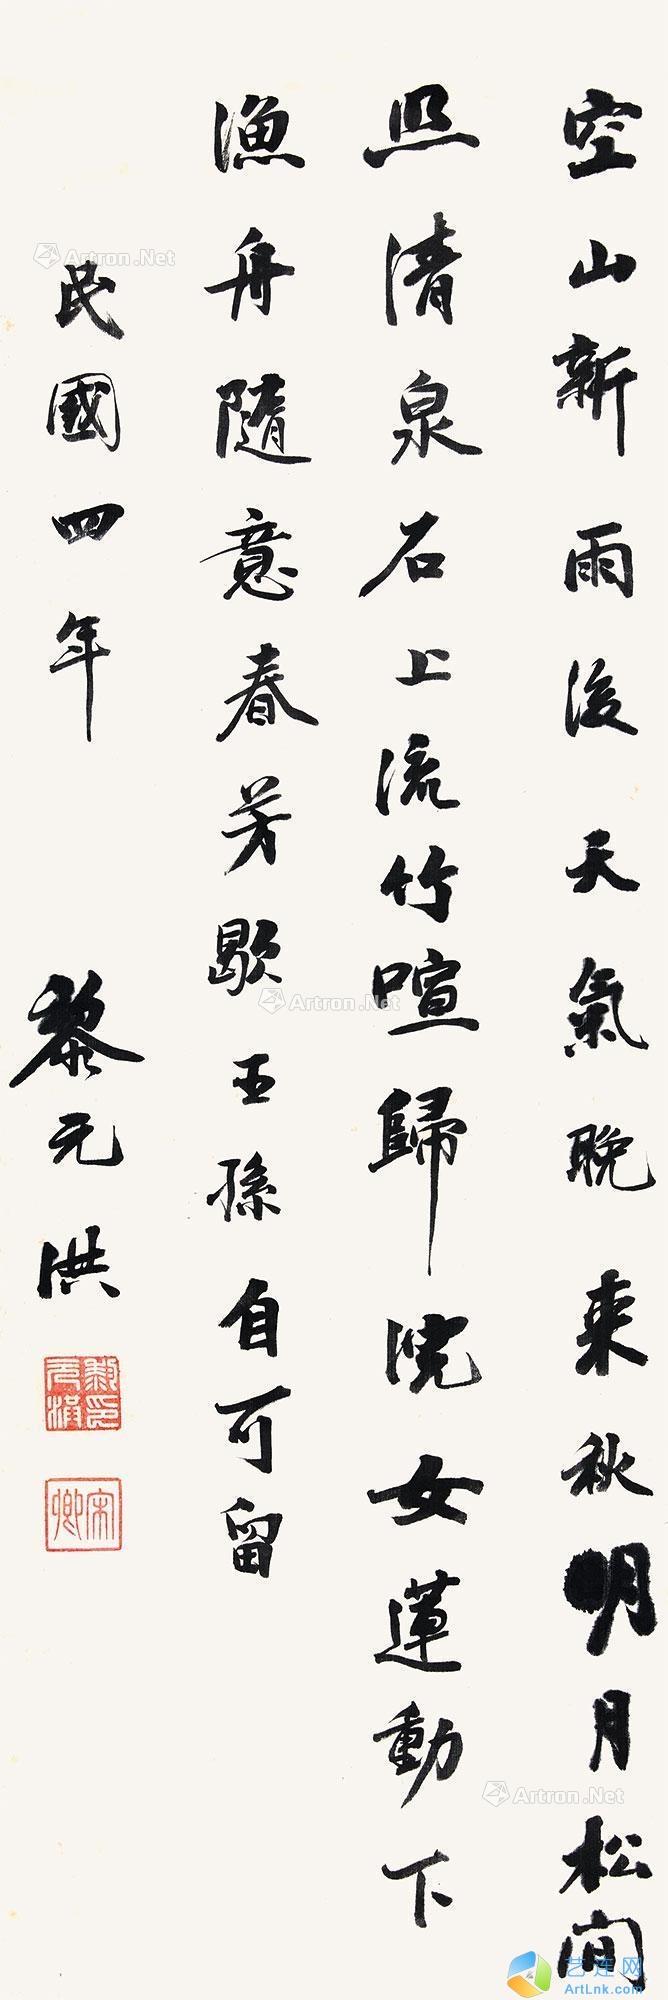 空山新雨後天氣晚来秋明月松間
照清泉石上流竹喧歸浣女蓮動下
漁舟隨意春芳歇王孫自可留
民國四年 黎元洪
黎元洪印
宋卿
Artron.Net
Artron.Net
Artron.Net
艺连网
ArtLnk.com